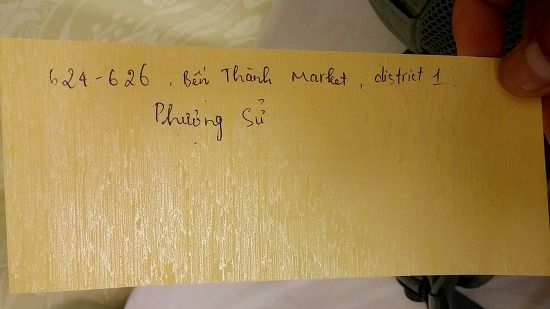 624-626, Bến Thành Market, district 1.
Phương Sử